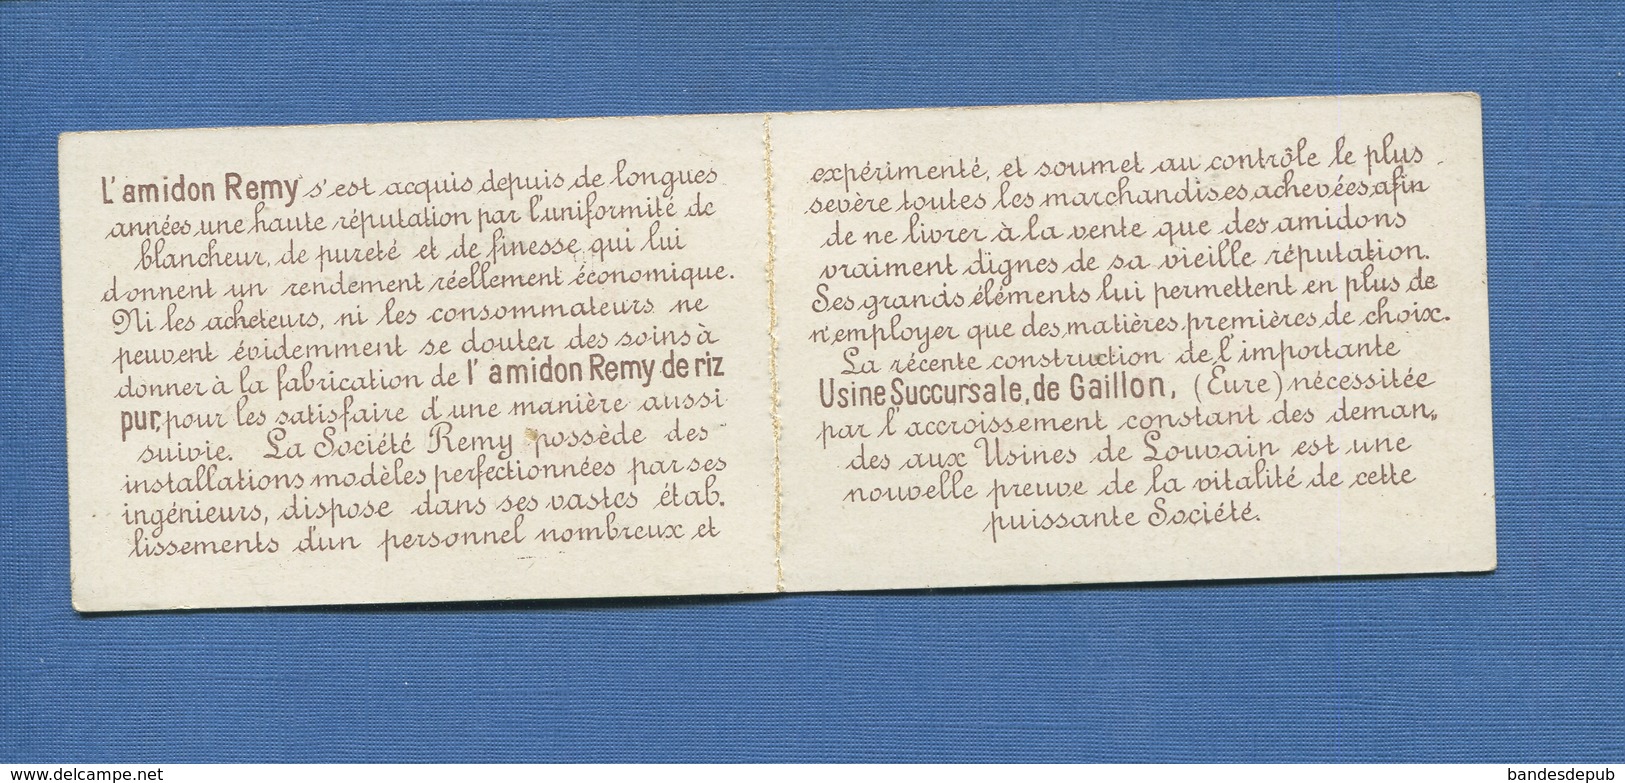 L'amidon Remy s'est acquis depuis de longues
années une haute réputation par l'uniformité de
blancheur, de pureté et de finesse qui lui
donnent un rendement réellement économique.
Ni les acheteurs, ni les consommateurs ne
peuvent évidemment se douter des soins à
donner à la fabrication de l'amidon Remy de riz
pur, pour les satisfaire d'une manière aussi
suivie. La Société Remy possède des
installations modèles perfectionnées par ses
ingénieurs, dispose dans ses vastes étab.
lissements d'un personnel nombreux et
expérimenté, et soumet au contrôle le plus
sevère toutes les marchandises achevées afin
de ne livrer à la vente que des amidons
vraiment dignes de sa vieille réputation.
Ses grands éléments lui permettent en plus de
n'employer que des matières premières de choix.
La récente construction de l'importante
Usine Succursale, de Gaillon, (Eure) nécessitée
par l'accroissement constant des deman„
des aux Usines de Louvain est une
nouvelle preuve de la vitalité de cette
puissante Société.
https://www.delcampe.net
bandesdepub